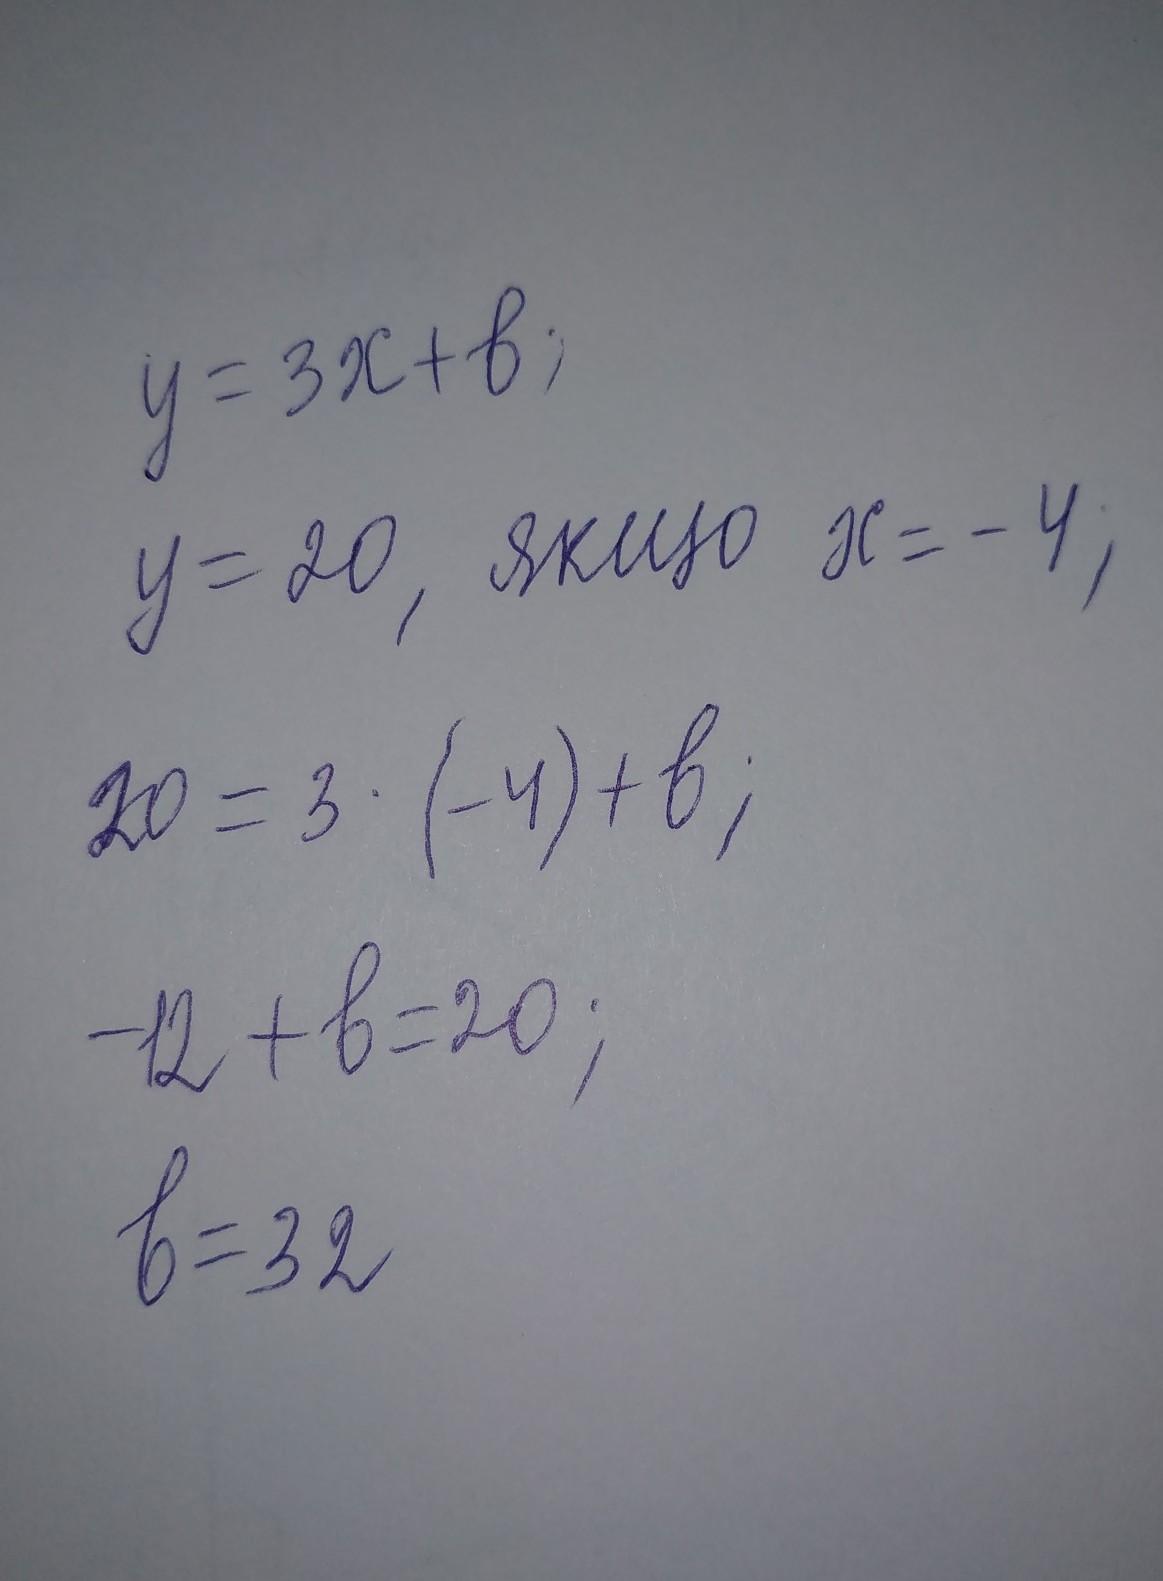 y = 3x + b;
y = 20, якщо x = - 4;
20 = 3 · (-4) + b;
-12 + b = 20;
b = 32